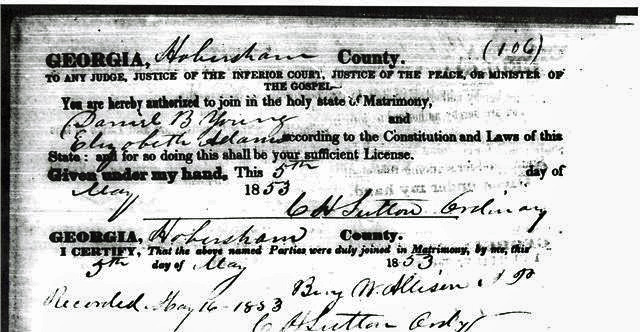 (106)
GEORGIA, Habersham County.
TO ANY JUDGE, JUSTICE OF THE INFERIOR COURT, JUSTICE OF THE PEACE, OR MINISTER OF
THE GOSPEL
You are hereby authorized to join in the holy state of Matrimony,
Daniel B Young and
Elizabeth Adams according to the Constitution and Laws of this
State: and for so doing this shall be your sufficient License.
Given under my hand. This 5th day of
May 1853
C H Sutton Ordinary
GEORGIA, Habersham County.
I CERTIFY, That the above named Parties were duly joined in Matrimony, by me, this
5th day of May 1853
Benj W Allison
Recorded May 16-1853
C H Sutton Ordy